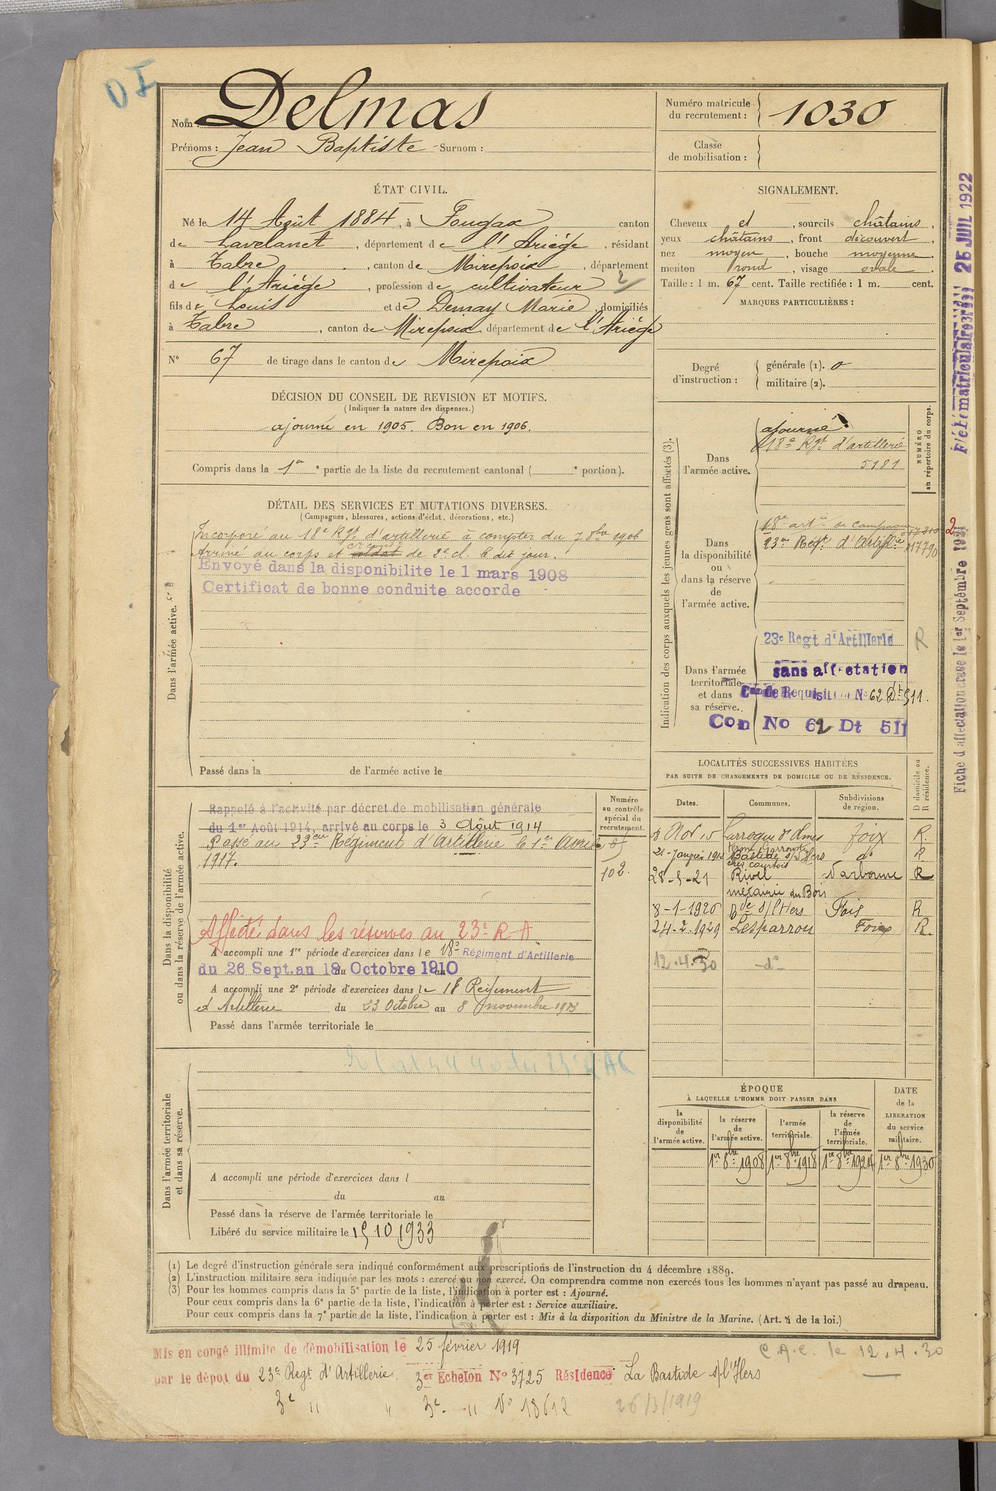 OI
Nom : Delmas
Prénoms : Jean Baptiste Surnom :
Numéro matricule du recrutement : 1030
Classe de mobilisation :
ÉTAT CIVIL.
Né le 14 Août 1884, à Fougax canton
de Lavelanet, département de l'Ariège, résidant
à Tabre, canton de Mirepoix, département
de l'Ariège, profession de cultivateur 2
fils de Louis et de Demay Marie, domiciliés
à Tabre, canton de Mirepoix, département de l'Ariège
N° 67 de tirage dans le canton de Mirepoix
SIGNALEMENT.
Cheveux et, sourcils châtains,
yeux châtains, front découvert,
nez moyen, bouche moyenne,
menton rond, visage ovale.
Taille : 1 m. 67 cent. Taille rectifiée : 1 m. cent.
MARQUES PARTICULIÈRES :
Degré d'instruction : générale (1). 0
militaire (2).
DÉCISION DU CONSEIL DE REVISION ET MOTIFS.
(Indiquer la nature des dispenses.)
ajourné en 1905. Bon en 1906.
Compris dans la 1re partie de la liste du recrutement cantonal ( portion).
DÉTAIL DES SERVICES ET MUTATIONS DIVERSES.
(Campagnes, blessures, actions d'éclat, décorations, etc.)
Dans l'armée active.
Incorporé au 18e Rgt d'artillerie à compter du 7 8bre 1906
Arrivé au corps et soldat de 2e cl. le dit jour.
Envoyé dans la disponibilite le 1 mars 1908
Certificat de bonne conduite accorde
Passé dans la de l'armée active le
Indication des corps auxquels les jeunes gens sont affectés (3).
NUMÉRO au répertoire du corps.
Dans l'armée active.
ajourné
18e Rgt d'artillerie
5181
Dans la disponibilité ou dans la réserve de l'armée active.
18e artie de campagne
23e Regt d'Artillie
Dans l'armée territoriale et dans sa réserve.
23e Regt d'Artillerie R
sans affectation
Con de Requisition N° 62 Dt 511.
Con No 62 Dt 511
Fiché matriculaire
25 JUIL 1922
Fiche d'affectation cruse le 1er Septembre
Dans la disponibilité ou dans la réserve de l'armée active.
Rappelé à l'activité par décret de mobilisation générale
du 1er Août 1914, arrivé au corps le 3 Août 1914
Passé au 23eme Regiment d'Artillerie le 1er Avril
1917.
Affecté dans les réserves au 23e R A
A accompli une 1re période d'exercices dans le 18e Régiment d'Artillerie
du 26 Sept. au 18 Octobre 1910
A accompli une 2e période d'exercices dans le 18 Regiment
d'Artillerie du 23 Octobre au 8 novembre
Passé dans l'armée territoriale le
Numéro au contrôle spécial du recrutement.
102.
LOCALITÉS SUCCESSIVES HABITÉES
PAR SUITE DE CHANGEMENTS DE DOMICILE OU DE RÉSIDENCE.
D domicile ou R résidence.
Dates. Communes. Subdivisions de région.
Nov Larroque d'Olmes Foix R
21-Janvier Bastide s/l'Hers do R
28-5-21 Rivel Narbonne R
métairie du Bois
8-1-1926 Bde s/l'Hers Foix R
24-2-1929 Lesparrou Foix R.
12.4.30 -do-
Dans l'armée territoriale et dans sa réserve.
A accompli une période d'exercices dans l
du au
Passé dans la réserve de l'armée territoriale le
Libéré du service militaire le 15 10 1933
ÉPOQUE
À LAQUELLE L'HOMME DOIT PASSER DANS
DATE de la LIBÉRATION du service militaire.
la disponibilité de l'armée active.
la réserve de l'armée active.
l'armée territoriale.
la réserve de l'armée territoriale.
1er 8bre 1908 1er 8bre 1918 1er 8bre 1924 1er 8bre 1930
(1) Le degré d'instruction générale sera indiqué conformément aux prescriptions de l'instruction du 4 décembre 1889.
(2) L'instruction militaire sera indiquée par les mots : exercé ou non exercé. On comprendra comme non exercés tous les hommes n'ayant pas passé au drapeau.
(3) Pour les hommes compris dans la 5e partie de la liste, l'indication à porter est : Ajourné.
Pour ceux compris dans la 6e partie de la liste, l'indication à porter est : Service auxiliaire.
Pour ceux compris dans la 7e partie de la liste, l'indication à porter est : Mis à la disposition du Ministre de la Marine. (Art. 4 de la loi.)
Mis en congé illimité de démobilisation le 25 février 1919
par le dépôt du 23e Regt d'Artillerie 3er Echelon N° 3725 Résidence La Bastide s/l'Hers
3e " " 3e " N° 18612
26/3/1919
C.A.C. le 12.4.30